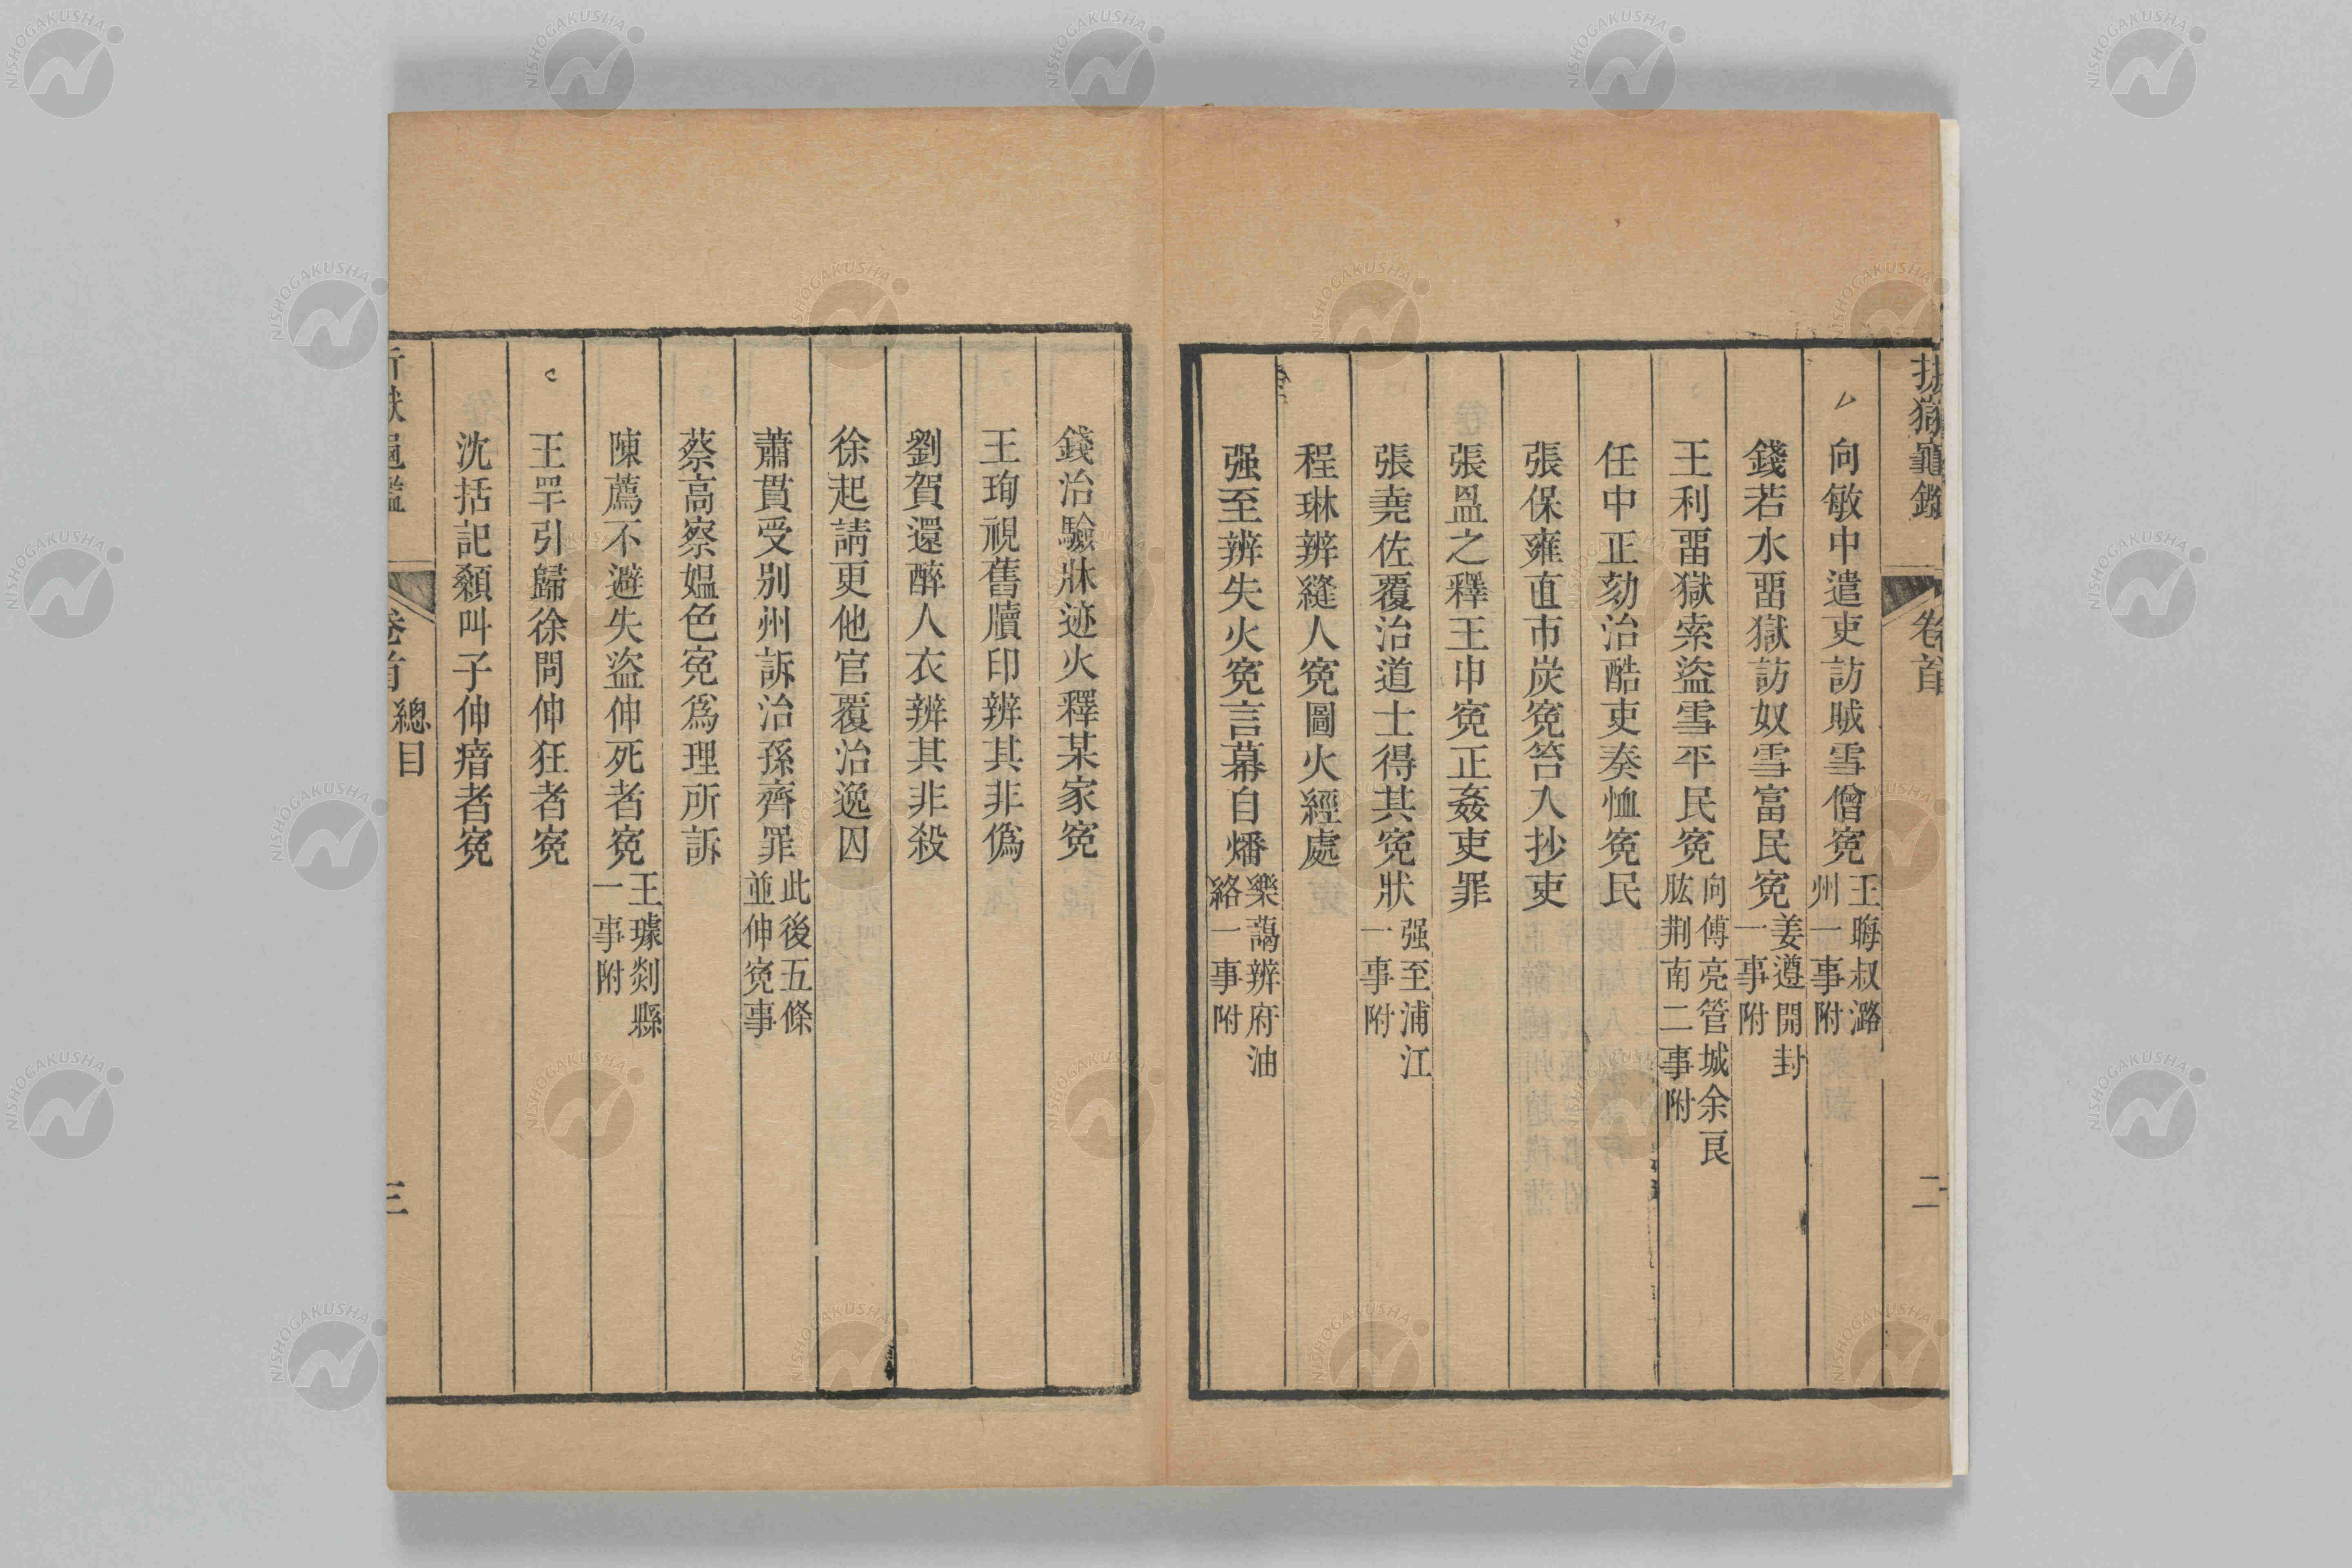 折獄龜鑑 卷首 二
向敏中遣吏訪賊雪僧寃王晦叔潞州一事附
錢若水畱獄訪奴雪富民寃姜遵開封一事附
王利畱獄索盜雪平民寃向傅亮管城余良肱荆南二事附
任中正劾治酷吏奏恤寃民
張保雍直市炭寃笞入抄吏
張昷之釋王申寃正姦吏罪
張堯佐覆治道士得其寃狀强至浦江一事附
程琳辨縫人寃圖火經處
强至辨失火寃言幕自燔樂藹辨府油絡一事附
錢冶驗牀迹火釋某家寃
王珣視舊牘印辨其非僞
劉賀還醉人衣辨其非殺
徐起請更他官覆治逸囚
蕭貫受别州訴治孫齊罪此後五條並伸寃事
蔡高察媼色寃爲理所訴
陳薦不避失盜伸死者寃王璩剡縣一事附
王罕引歸徐問伸狂者寃
沈括記顙叫子伸瘖者寃
折獄龜鑑 卷首 總目 三
NISHOGAKUSHA